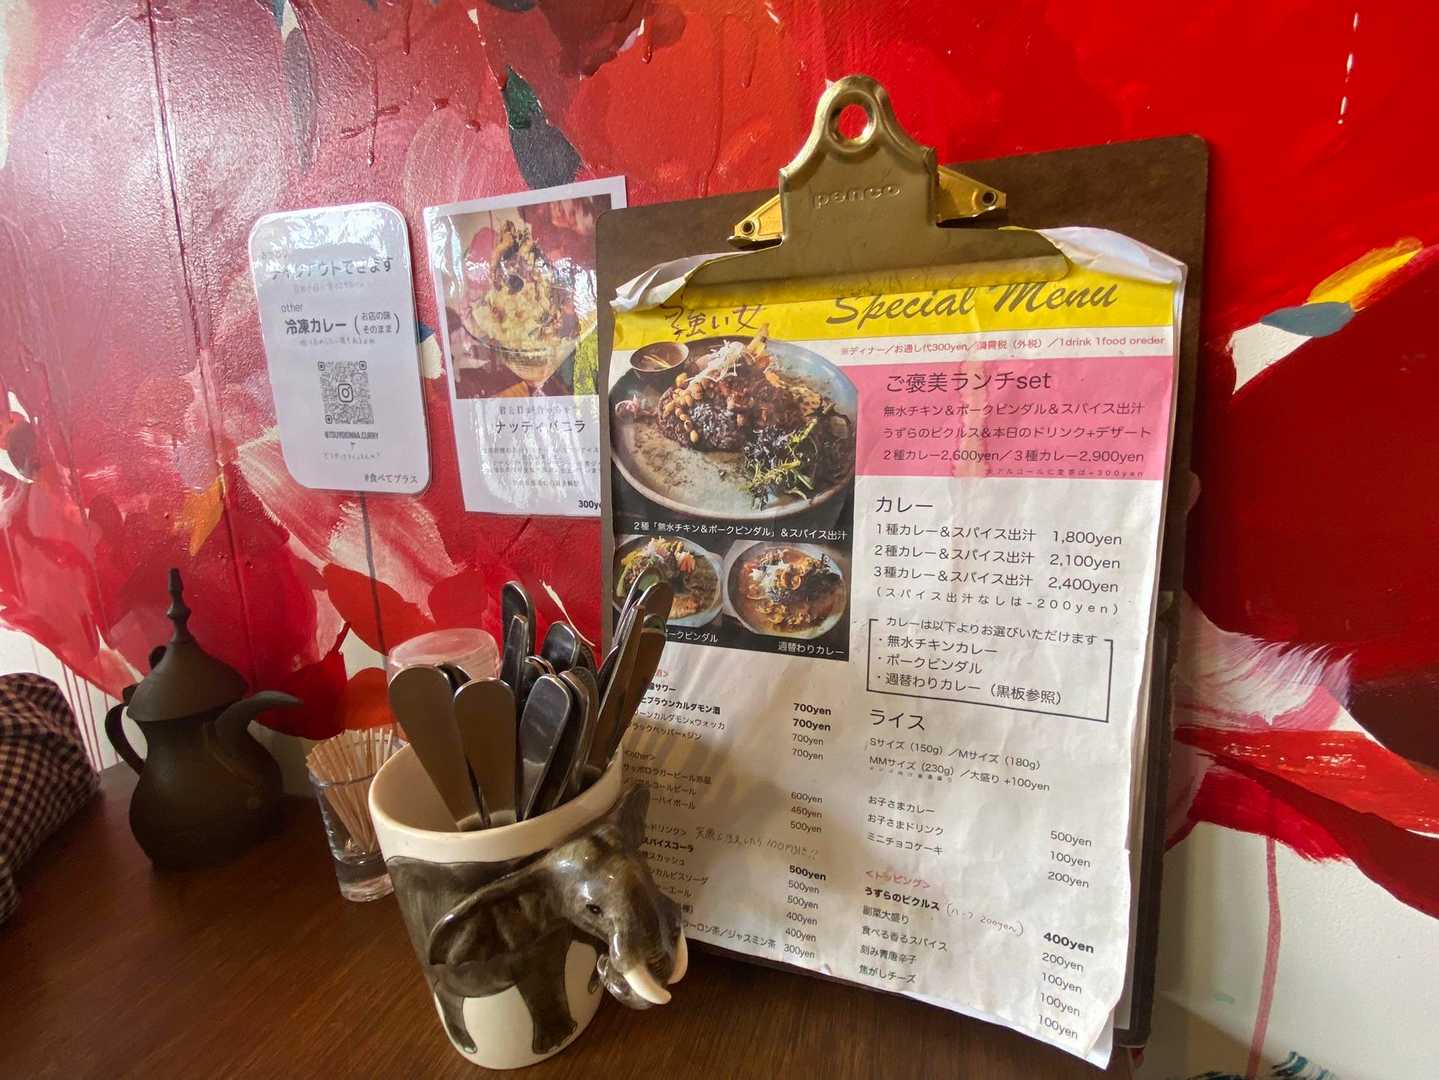 テイクアウトできます
other
冷凍カレー(お店の味そのまま)
@TSUYOIONNA.CURRY
#食べてプラス
ナッティバニラ
penco
強い女
Special Menu
※ディナー／お通し代300yen／消費税（外税）／1drink 1food oreder
ご褒美ランチset
無水チキン＆ポークビンダル＆スパイス出汁
うずらのピクルス＆本日のドリンク+デザート
2種カレー2,600yen／3種カレー2,900yen
アルコールに変更は+300yen
2種「無水チキン＆ポークビンダル」＆スパイス出汁
ークビンダル
週替わりカレー
カレー
1種カレー＆スパイス出汁 1,800yen
2種カレー＆スパイス出汁 2,100yen
3種カレー＆スパイス出汁 2,400yen
(スパイス出汁なしは-200yen)
カレーは以下よりお選びいただけます
・無水チキンカレー
・ポークビンダル
・週替わりカレー（黒板参照）
ライス
Sサイズ（150g）／Mサイズ（180g）
MMサイズ（230g）／大盛り +100yen
お子さまカレー 500yen
お子さまドリンク 100yen
ミニチョコケーキ 200yen
<トッピング>
うずらのピクルス (ハーフ 200yen) 400yen
副菜大盛り 200yen
食べる香るスパイス 100yen
刻み青唐辛子 100yen
焦がしチーズ 100yen
サワー 700yen
ブラウンカルダモン酒 700yen
ーンカルダモン×ウォッカ 700yen
ラックペッパー×ジン 700yen
<other>
サッポロラガービール赤星 600yen
ノンアルコールビール 450yen
ーハイボール 500yen
ドリンク>
スパイスコーラ 500yen
スカッシュ 500yen
ンカルピスソーダ 500yen
ーエール 400yen
400yen
ーロン茶／ジャスミン茶 300yen